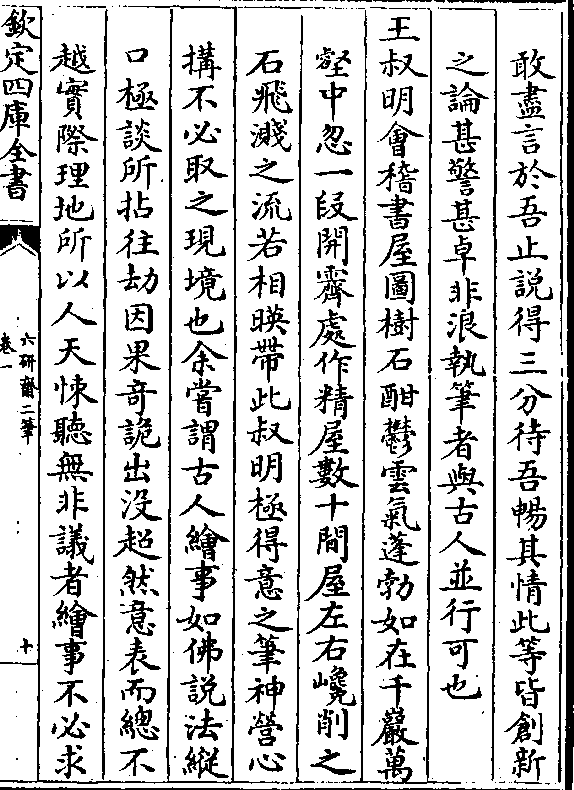 敢盡言於吾止説得三分待吾暢其情此等皆創新
之論甚警甚卓非浪執筆者與古人並行可也
王叔明會稽書屋圖樹石酣鬱雲氣蓬勃如在千巖萬
壑中忽一段開霽處作精屋數十間屋左右巉削之
石飛濺之流若相暎帶此叔明極得意之筆神營心
搆不必取之現境也余嘗謂古人繪事如佛説法縱
口極談所拈往劫因果奇詭出没超然意表而總不
越實際理地所以人天悚聽無非議者繪事不必求
欽定四庫全書
六研齋二筆
卷一
十